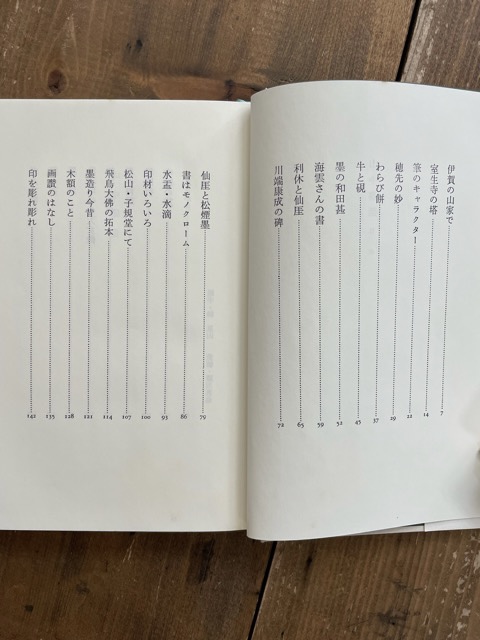 伊賀の山家で 7
室生寺の塔 14
筆のキャラクター 22
穂先の妙 29
わらび餅 37
牛と硯 45
墨の和田甚 52
海雲さんの書 59
利休と仙厓 65
川端康成の碑 72
仙厓と松煙墨 79
書はモノクローム 86
水盂・水滴 93
印材いろいろ 100
松山・子規堂にて 107
飛鳥大佛の拓本 114
墨造り今昔 121
木額のこと 128
画讃のはなし 135
印を彫れ彫れ 142